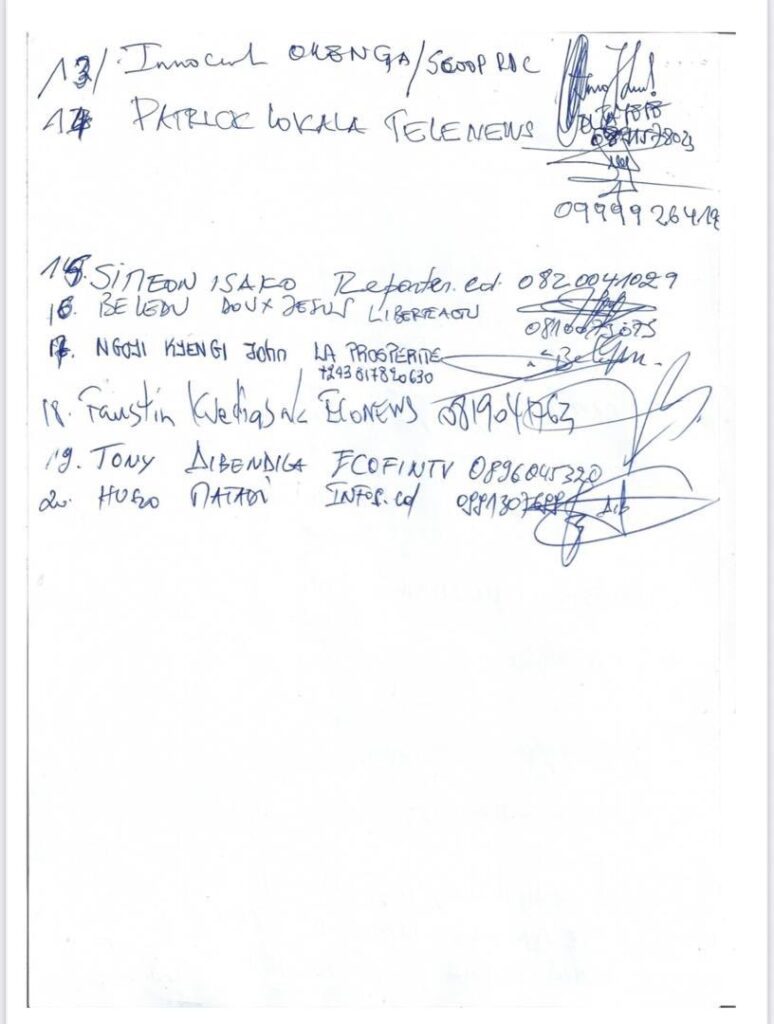 13/. Innocent OKENGA/SCOOP RDC
14 PATRICK LOKALA TELENEWS
0999926419
15. SIMEON ISAKO Reporter.cd 0820041029
16. BELEDU DOUX JESUS LIBERTEACTU
17. NGOYI KYENGI John LA PROSPERITE
+243817820630
18. Faustin NEWS 0819041763
19. TONY DIBENDILA ECOFINTV 0896045320
20. HUGO MATADI INFOS.cd